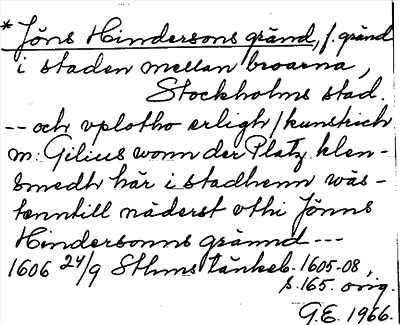 * Jöns Hindersons gränd, f. gränd
i staden mellan broarna,
Stockholms stad.
-- och vplotho erligh / kunstrich
m: Gilius wonn der Platz klen-
smedh här i stadhenn wäs-
tenntill näderst vthi Jönns
Hindersonns grännd ---
1606 24/9 Sthms tänkeb. 1605-08,
s. 165. orig.
G.E. 1966.